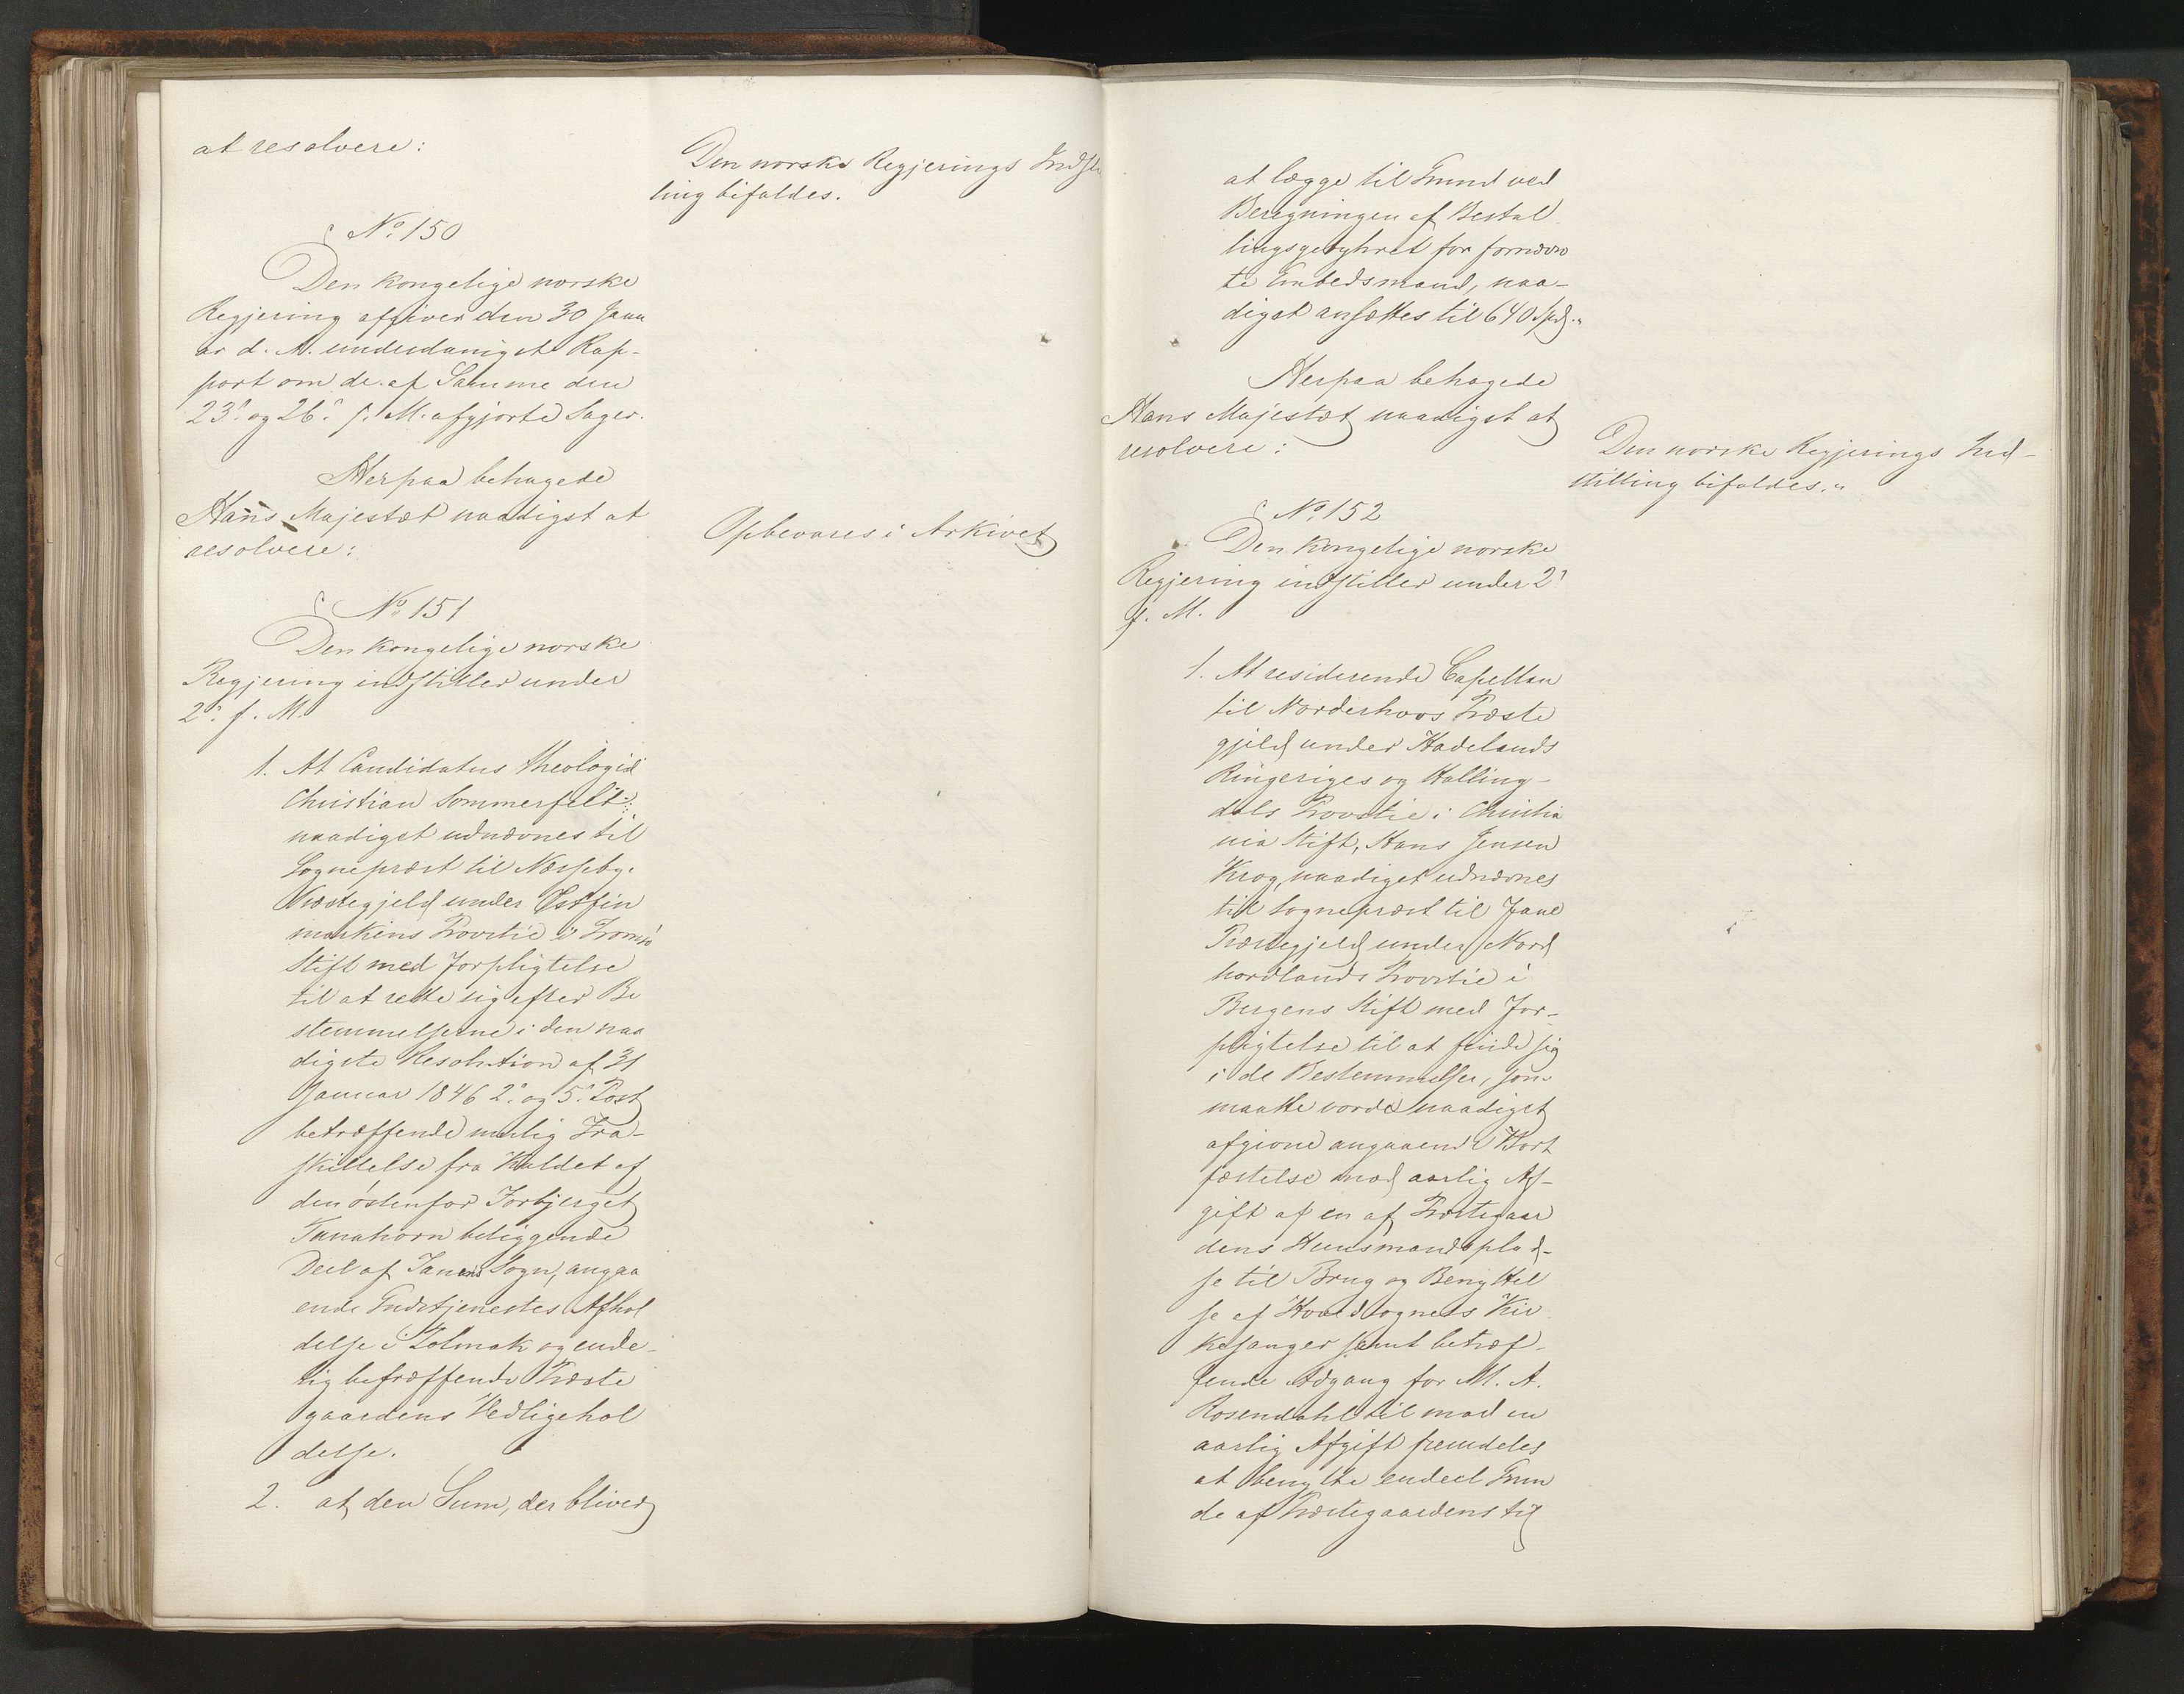 at resolvere:
Den norske Regjerings Indstil
ling bifaldes.
No. 150
Den kongelige norske
Regjering afgiver den 30 Janu
ar d. A. underdanigst Rap-
port om de af Samme den
23. og 26. s. M. afgjorte Sager.
Herpaa behagede
Hans Majestæt naadigst at
resolvere:
Opbevares i Arkivet
No. 151
Den kongelige norske
Regjering indstiller under
2. f. M.
1. At Candidatus theologiæ
Christian Sommerfelt
naadigst udnævnes til
Sognepræst til Nesseby
Præstegjeld under Østfin
markens Provstie i Tromsø
Stift med Forpligtelse
til at rette sig efter Be
stemmelserne i den naa
digste Resolution af 31
Januar 1846 2. og 5. Post
betræffende mulig Fra-
skillelse fra Kaldet af
den østenfor Forbjerget
Tanahorn beliggende
Deel af Tanens Sogn, angaa
ende Gudstjenestes Afhol
delse i Polmak og ende-
lig betræffende Præste
gaardens Vedligehol
delse.
2. at den Sum, der bliver
at lægge til Grund ved
Beregningen af Bestal
lingsgebyhret for fornævn
te Embedsmand, naa-
digst ansættes til 640 Spd."
Herpaa behagede
Hans Majestæt naadigst at
resolvere:
Den norske Regjerings Ind-
stilling bifaldes."
No. 152
Den kongelige norske
Regjering indstiller under 2
f. M.
1. At residerende Capellan
til Norderhovs Præste
gjeld under Hadelands
Ringeriges og Halling-
dals Provstie i Christia
nia Stift, Hans Jensen
Krog, naadigst udnævnes
til Sognepræst til
Præstegjeld under Nord
hordlands Provstie i
Bergens Stift med For-
pligtelse til at finde sig
i de Bestemmelser, som
maatte vorde naadigst
afgivne angaaende Bort
fæstelse mod aarlig Af-
gift af en af Præstegaar
dens Huusmandsplad-
se til Brug og Benyttel
se af Hovedsognets Kir
kesanger samt betræf-
fende Adgang for M. A.
Rosendahl til mod en
aarlig Afgift fremdeles
at benytte endeel Grun
de af Præstegaardens til